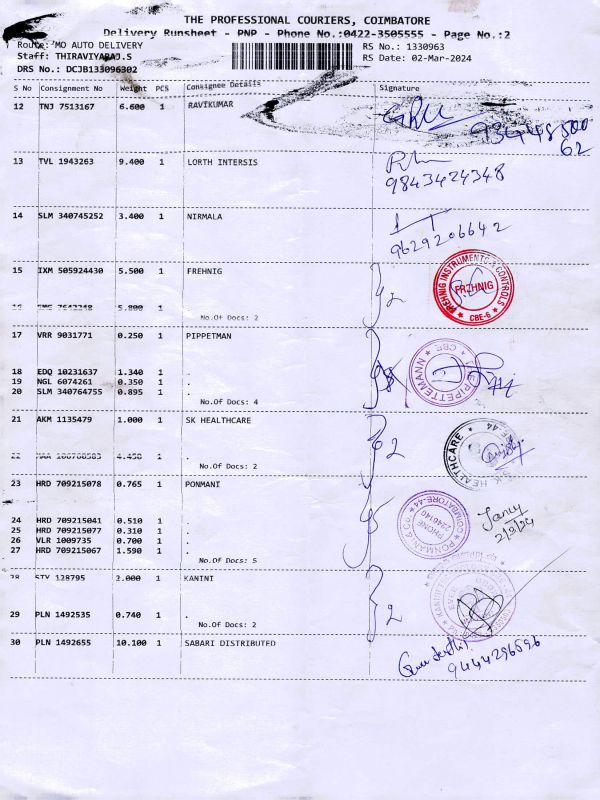 THE PROFESSIONAL COURIERS, COIMBATORE
Delivery Runsheet - PNP - Phone No.:0422-3505555 - Page No.:2
Route: MO AUTO DELIVERY RS No.: 1330963
Staff: THIRAVIYARAJ.S RS Date: 02-Mar-2024
DRS No.: DCJB133096302
S No Consignment No Weight PCS Consignee Details Signature
12 TNJ 7513167 6.600 1 RAVIKUMAR
13 TVL 1943263 9.400 1 LORTH INTERSIS
9843424348
14 SLM 340745252 3.400 1 NIRMALA
9629206642
15 IXM 505924430 5.500 1 FREHNIG
FREHNIG INSTRUMENTS & CONTROLS
FREHNIG
CBE-6
2
5.800 1
No.Of Docs: 2
17 VRR 9031771 0.250 1 PIPPETMAN
18 EDQ 10231637 1.340 1 .
19 NGL 6074261 0.350 1 .
20 SLM 340764755 0.895 1 .
No.Of Docs: 4
21 AKM 1135479 1.000 1 SK HEALTHCARE
SK HEALTHCARE
2
4.450 1 .
No.Of Docs: 2
23 HRD 709215078 0.765 1 PONMANI
COIMBATORE-44
PHONE
2246140
PONMAN & CO.
5
24 HRD 709215041 0.510 1 .
25 HRD 709215077 0.310 1 .
26 VLR 1009735 0.700 1 .
27 HRD 709215067 1.590 1 .
2/3/24
No.Of Docs: 5
28 STV 128795 2.000 1 KANINI
29 PLN 1492535 0.740 1 .
2
No.Of Docs: 2
30 PLN 1492655 10.100 1 SABARI DISTRIBUTED
9444296596